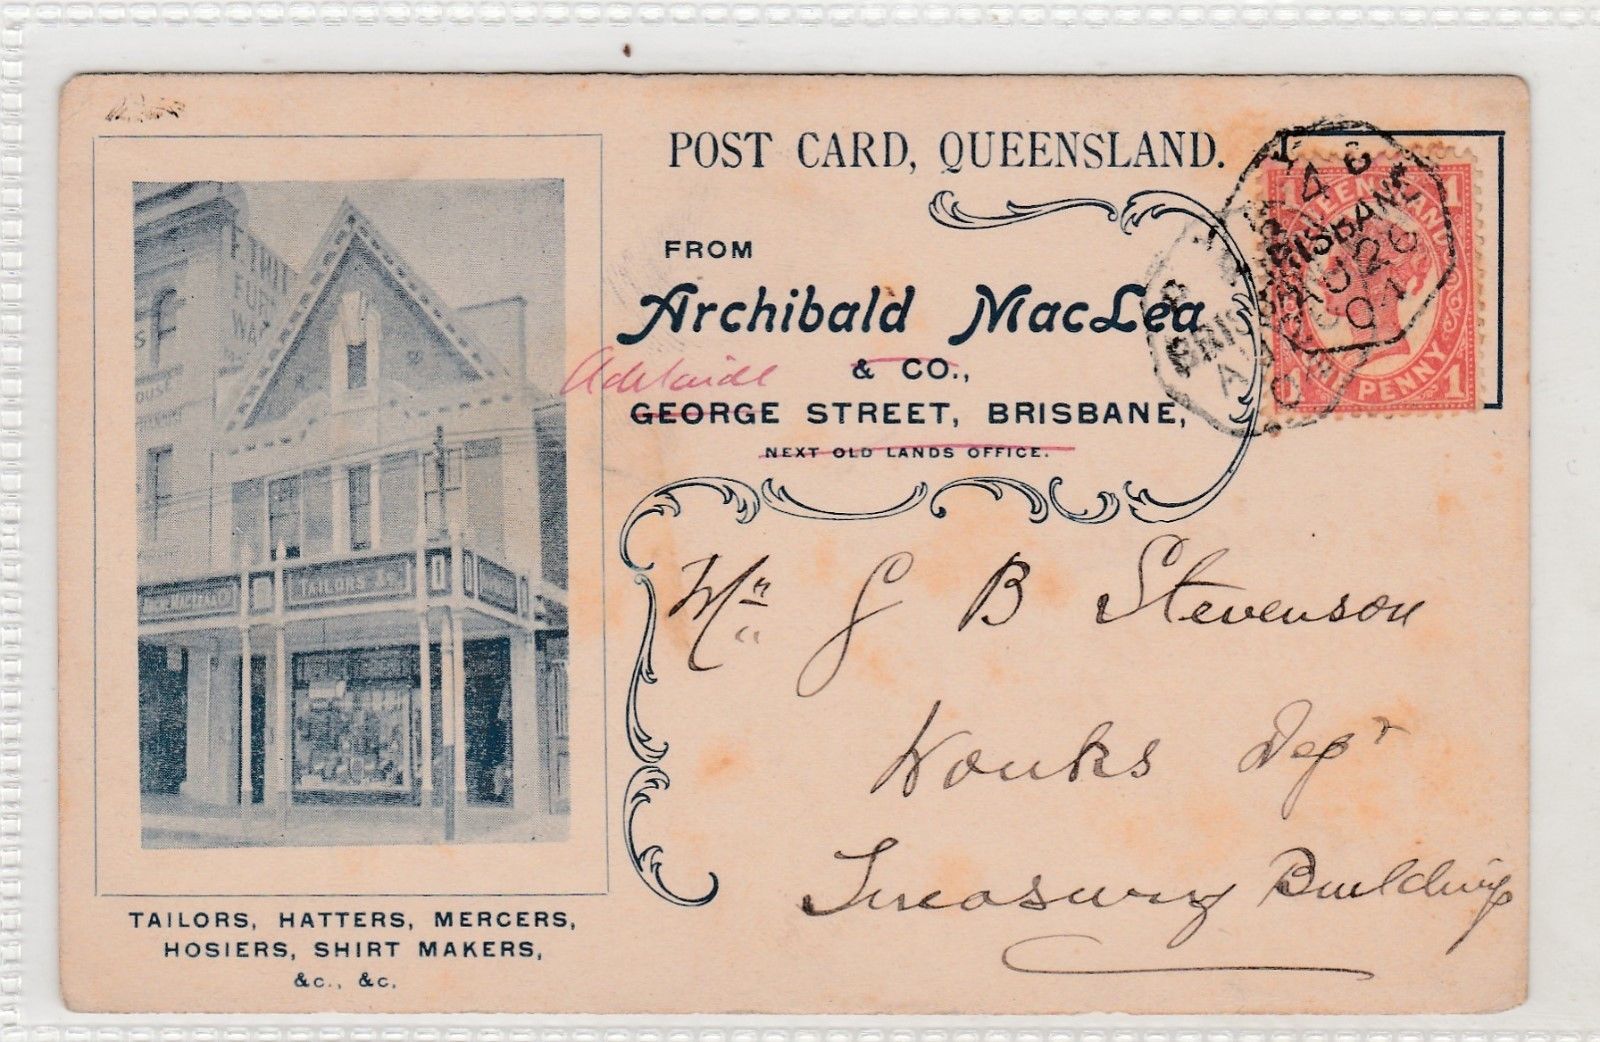 POST CARD, QUEENSLAND.
FROM
Archibald MacLea
& CO.,
Adelaide
GEORGE STREET, BRISBANE,
NEXT OLD LANDS OFFICE.
QUEENSLAND
1 1
PENNY
1 1
BRISBANE
AU 26
04
BRISBANE
AU
04
FURN
TAILORS &c.
Mr G B Stevenson
Works Dept
Treasury Buildings
TAILORS, HATTERS, MERCERS,
HOSIERS, SHIRT MAKERS,
&c., &c.